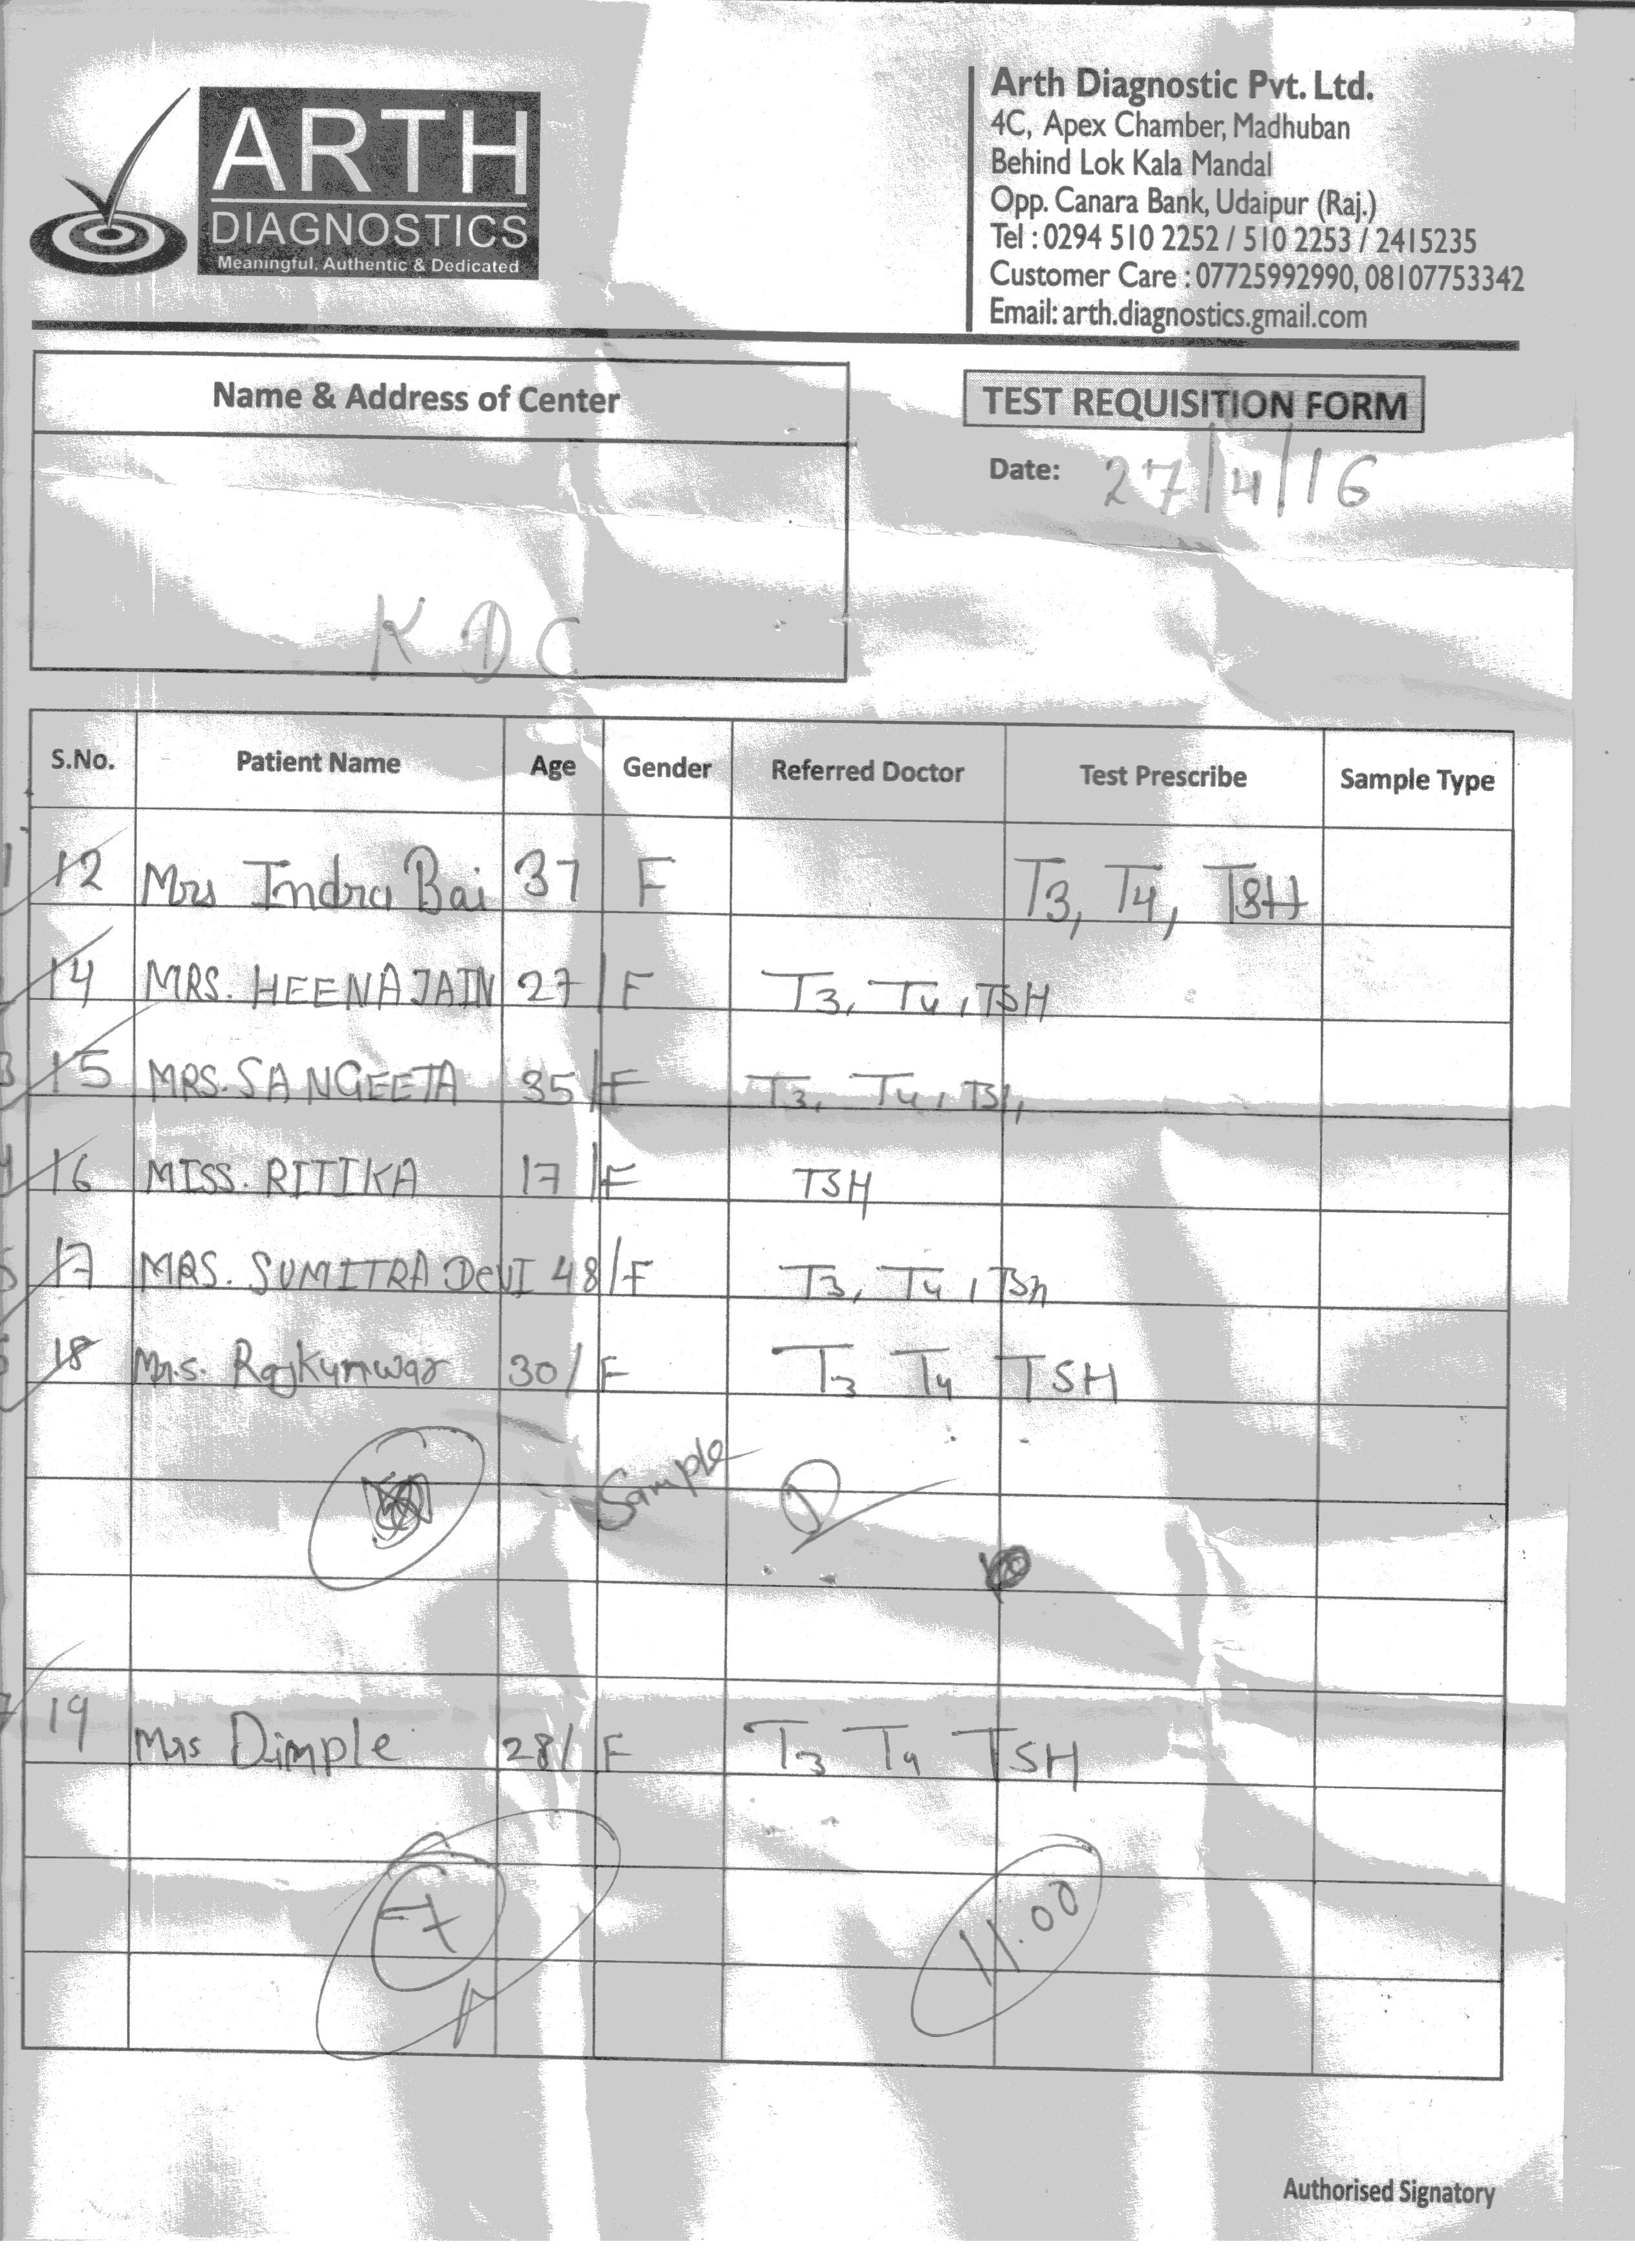 ARTH
DIAGNOSTICS
Meaningful, Authentic & Dedicated
Arth Diagnostic Pvt. Ltd.
4C, Apex Chamber, Madhuban
Behind Lok Kala Mandal
Opp. Canara Bank, Udaipur (Raj.)
Tel : 0294 510 2252 / 510 2253 / 2415235
Customer Care : 07725992990, 08107753342
Email: arth.diagnostics.gmail.com
Name & Address of Center
KDC
TEST REQUISITION FORM
Date: 27/4/16
S.No. Patient Name Age Gender Referred Doctor Test Prescribe Sample Type
1 12 Mrs Indra Bai 37 F T3, T4, TSH
14 MRS. HEENA JAIN 27/F T3, T4, TSH
3 15 MRS. SANGEETA 35/F T3, T4, TSH
4 16 MISS. RITIKA 17/F TSH
5 17 MRS. SUMITRA DEVI 48/F T3, T4, TSh
18 Mrs. Rajkunwar 30/F T3 T4 TSH
Sample
7 19 Mrs Dimple 28/F T3 T4 TSH
11.00
Authorised Signatory